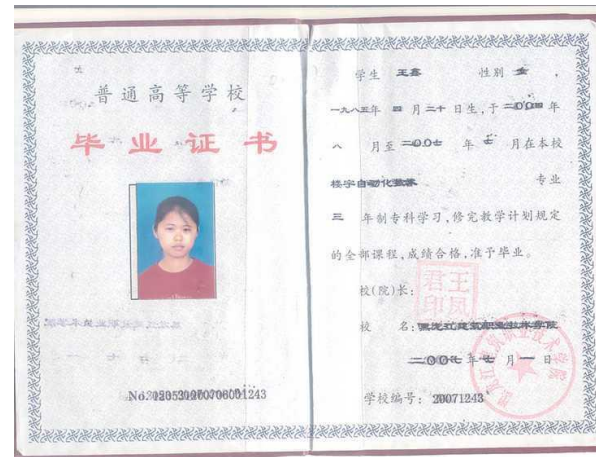 普通高等学校
毕业证书
学生 王鑫 性别 女 ,
一九八五年 四 月 二十 日生,于 二〇〇四 年
八 月至 二〇〇七 年 七 月在本校
楼宇自动化 专业
三 年制专科学习,修完教学计划规定
的全部课程,成绩合格,准予毕业。
校(院)长:
校 名: 黑龙江建筑职业技术学院
二〇〇七年七月一日
学校编号: 20071243